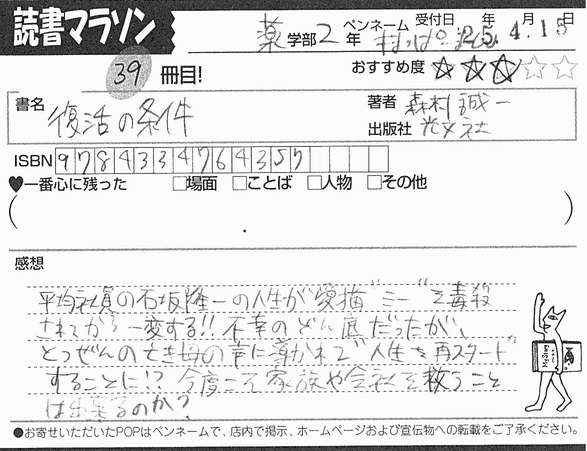 読書マラソン
薬学部2年 ペンネーム 受付日 25年4月15日
39冊目! おすすめ度 ★★★☆☆
書名 復活の条件 著者 森村誠一
出版社 光文社
ISBN 9784334764357
♥一番心に残った □場面 □ことば □人物 □その他
( )
感想
平均社員の石坂隆一の人生が愛猫"ミー"を毒殺
されてから一変する!! 不幸のどん底だったが、
とつぜんの亡き母の声に導かれて"人生を再スタート"
することに!? 今度こそ家族や会社を救うこと
は出来るのか?
●お寄せいただいたPOPはペンネームで、店内で掲示、ホームページおよび宣伝物への転載をご了承ください。